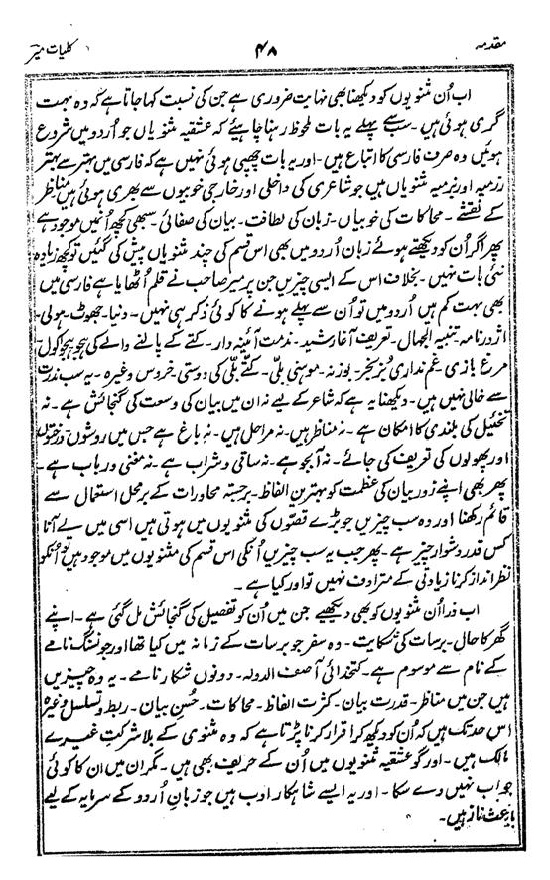 مقدمہ ۴۸ کلیات میر
اب اُن مثنویوں کو دیکھنا بھی نہایت ضروری ہے جن کی نسبت کہا جاتا ہے کہ وہ بہت
گری ہوئی ہیں۔ سب سے پہلے یہ بات ملحوظ رہنا چاہئے کہ عشقیہ مثنویاں جو اُردو میں شروع
ہوئیں وہ صرف فارسی کا اتباع ہیں۔ اور یہ بات چھپی ہوئی نہیں ہے کہ فارسی میں بہتر سے بہتر
رزمیہ اور بزمیہ مثنویاں ہیں جو شاعری کی داخلی اور خارجی خوبیوں سے بھری ہوئی ہیں مناظر
کے نقشے۔ محاکات کی خوبیاں۔ زبان کی لطافت۔ بیان کی صفائی۔ سبھی کچھ اُنہیں موجود ہے
پھر اگر اُن کو دیکھتے ہوئے زبان اُردو میں بھی اس قسم کی چند مثنویاں پیش کی گئیں تو کچھ زیادہ
نئی بات نہیں۔ بخلاف اس کے ایسی چیزیں جن پر میر صاحب نے قلم اُٹھایا ہے فارسی میں
بھی بہت کم ہیں اُردو میں تو اُن سے پہلے ہونے کا کوئی ذکر ہی نہیں۔ دنیا۔ جھوٹ۔ ہولی۔
اژدر نامہ۔ تنبیہ الجہال۔ تعریف آغا رشید۔ مذمت آئینہ دار۔ کتے کے پالنے والے کی ہجو۔ ہجو اکول
مرغ بازی۔ غم نداری بز بخر۔ بوزنہ۔ موہنی بلی۔ کتے بلی کی دوستی۔ خروس وغیرہ۔ یہ سب ندرت
سے خالی نہیں ہیں۔ دیکھنا یہ ہے کہ شاعر کے لیے نہ ان میں بیان کی وسعت کی گنجائش ہے۔ نہ
تخئیل کی بلندی کا امکان ہے۔ نہ مناظر ہیں۔ نہ مراحل ہیں۔ نہ باغ ہے جس میں روشوں۔ درختوں
اور پھولوں کی تعریف کی جائے۔ نہ آبجو ہے۔ نہ ساقی و شراب ہے۔ نہ مغنی و رباب ہے۔
پھر بھی اپنے زور بیان کی عظمت کو بہترین الفاظ۔ برجستہ محاورات کے برمحل استعمال سے
قائم رکھنا اور وہ سب چیزیں جو بڑے قصوں کی مثنویوں میں ہوتی ہیں اسی میں لے آنا
کس قدر دشوار چیز ہے۔ پھر جب یہ سب چیزیں اُنکی اس قسم کی مثنویوں میں موجود ہیں تو اُنکو
نظر انداز کرنا زیادتی کے مترادف نہیں تو اور کیا ہے۔
اب ذرا اُن مثنویوں کو بھی دیکھیے جن میں اُن کو تفصیل کی گنجائش مل گئی ہے۔ اپنے
گھر کا حال۔ برسات کی شکایت۔ وہ سفر جو برسات کے زمانہ میں کیا تھا اور جو نسنگ نامے
کے نام سے موسوم ہے۔ کتخدائی آصف الدولہ۔ دونوں شکار نامے۔ یہ وہ چیزیں
ہیں جن میں مناظر۔ قدرت بیان۔ کثرت الفاظ۔ محاکات۔ حُسن بیان۔ ربط و تسلسل وغیرہ
اس حد تک ہیں کہ اُن کو دیکھ کر اقرار کرنا پڑتا ہے کہ وہ مثنوی کے بلا شرکتِ غیرے
مالک ہیں۔ اور گو عشقیہ مثنویوں میں اُن کے حریف بھی ہیں۔ مگر ان میں ان کا کوئی
جواب نہیں دے سکا۔ اور یہ ایسے شاہکار ادب ہیں جو زبانِ اُردو کے سرمایہ کے لیے
باعث ناز ہیں۔